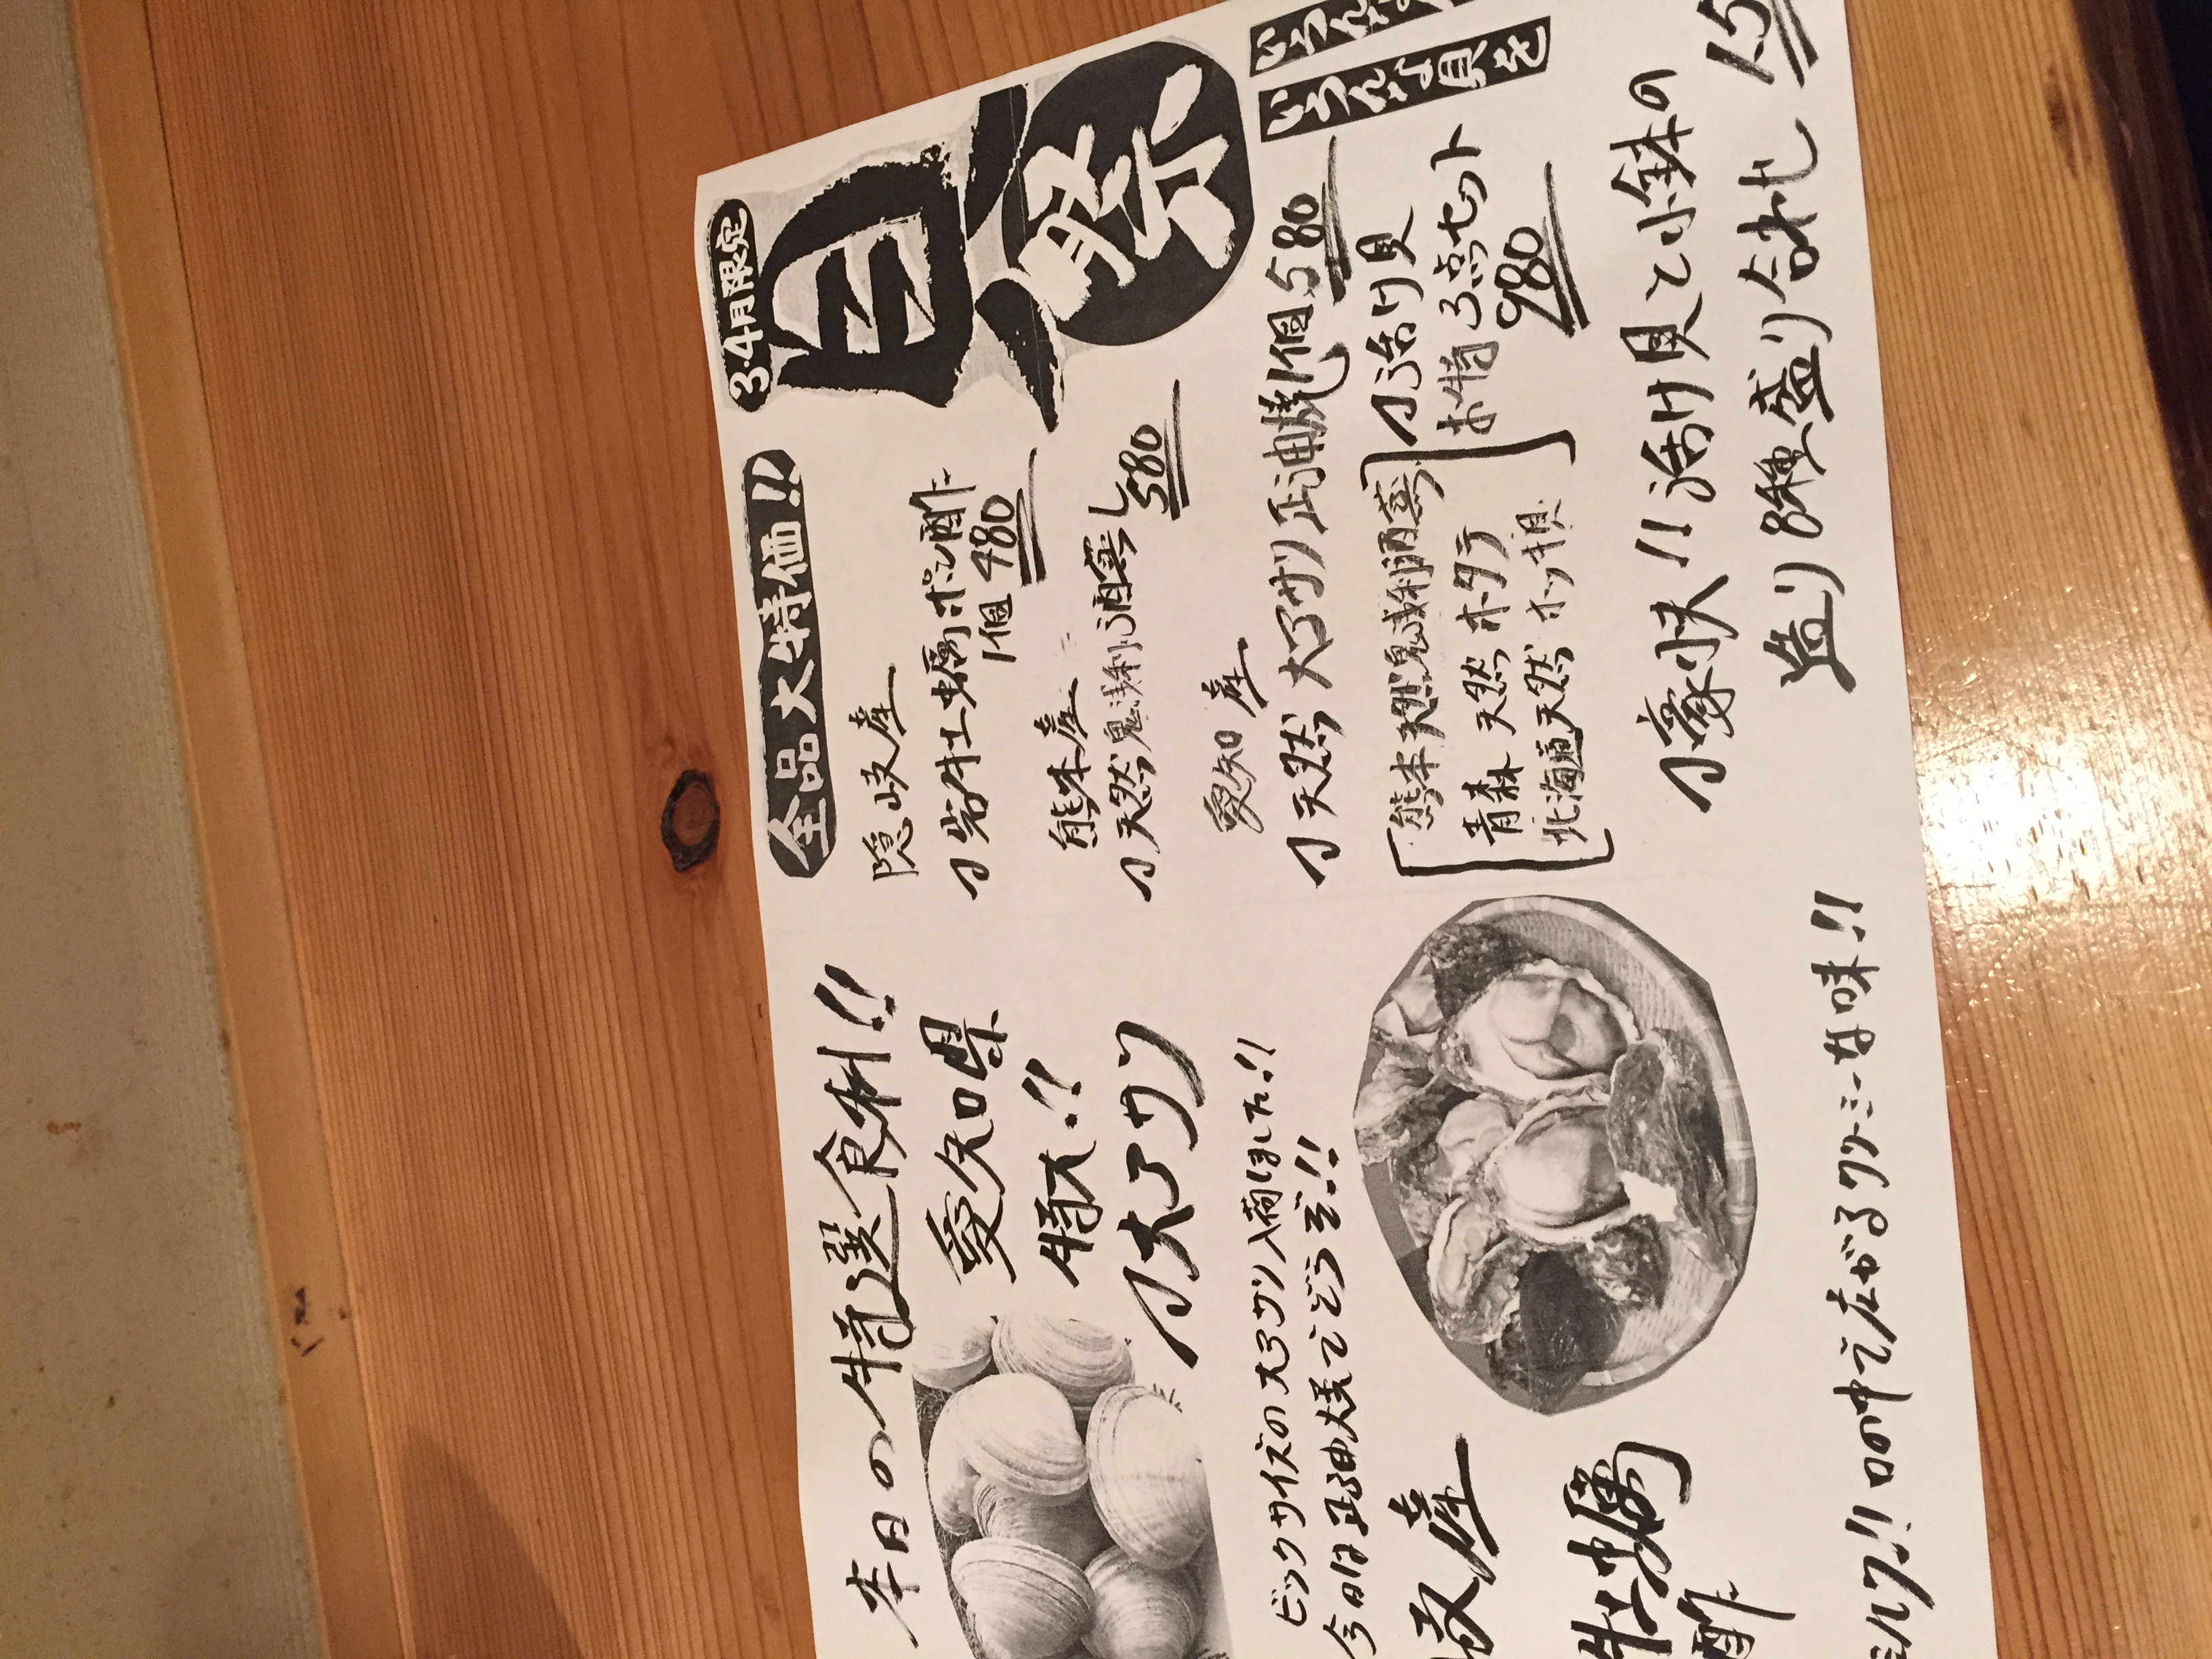 本日の特選食材!!
愛知県
特大!!
大アサリ
ビックサイズの大アサリ入荷しました!!
今日は正油焼でどうぞ!!
岐産
牡蠣
酢
ミルク!!口の中で広がるクリーミーな味!!
全品大特価!!
3・4月限定
貝祭
隠岐産
岩牡蠣ポン酢
1個 480
熊本産
天然鬼浅利の酒蒸し
580
愛知産
天然大アサリ正油焼 1個 580
熊本天然鬼浅利酒蒸
青森天然ホタテ
北海道天然ホッキ貝
活け貝
お得3点セット
980
いろんな貝を
豪快!!活け貝と小鉢の
造り8種盛り合わせ